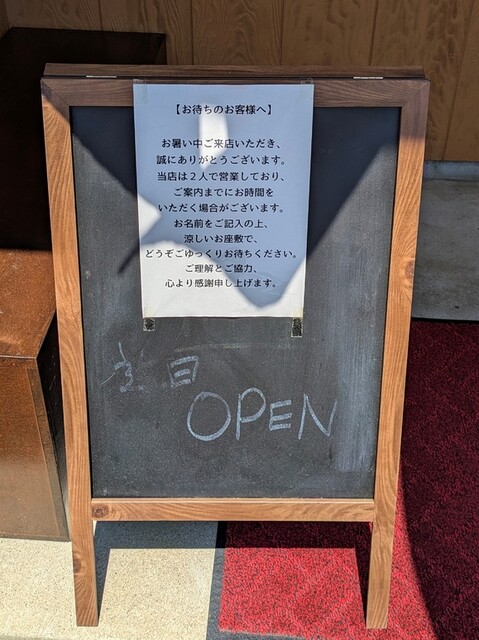 【お待ちのお客様へ】
お暑い中ご来店いただき、
誠にありがとうございます。
当店は２人で営業しており、
ご案内までにお時間を
いただく場合がございます。
お名前をご記入の上、
涼しいお座敷で、
どうぞごゆっくりお待ちください。
ご理解とご協力、
心より感謝申し上げます。
OPEN